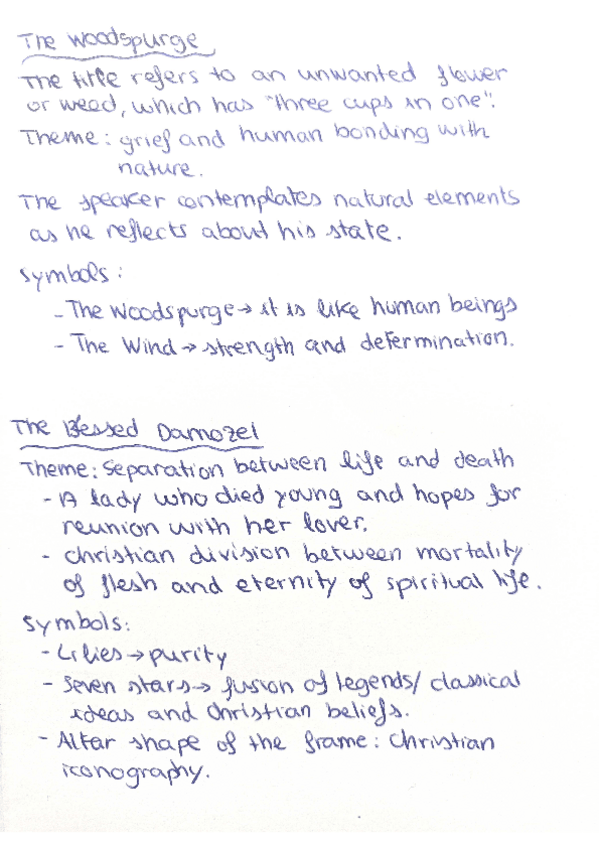 The Woodspurge
The title refers to an unwanted flower
or weed, which has "three cups in one".
Theme: grief and human bonding with
nature.
The speaker contemplates natural elements
as he reflects about his state.
Symbols:
- The Woodspurge → it is like human beings
- The Wind → strength and determination.
The Blessed Damozel
Theme: Separation between life and death
- A lady who died young and hopes for
reunion with her lover.
- Christian division between mortality
of flesh and eternity of spiritual life.
Symbols:
- Lilies → purity
- Seven stars → fusion of legends/classical
ideas and Christian beliefs.
- Altar shape of the frame: Christian
iconography.